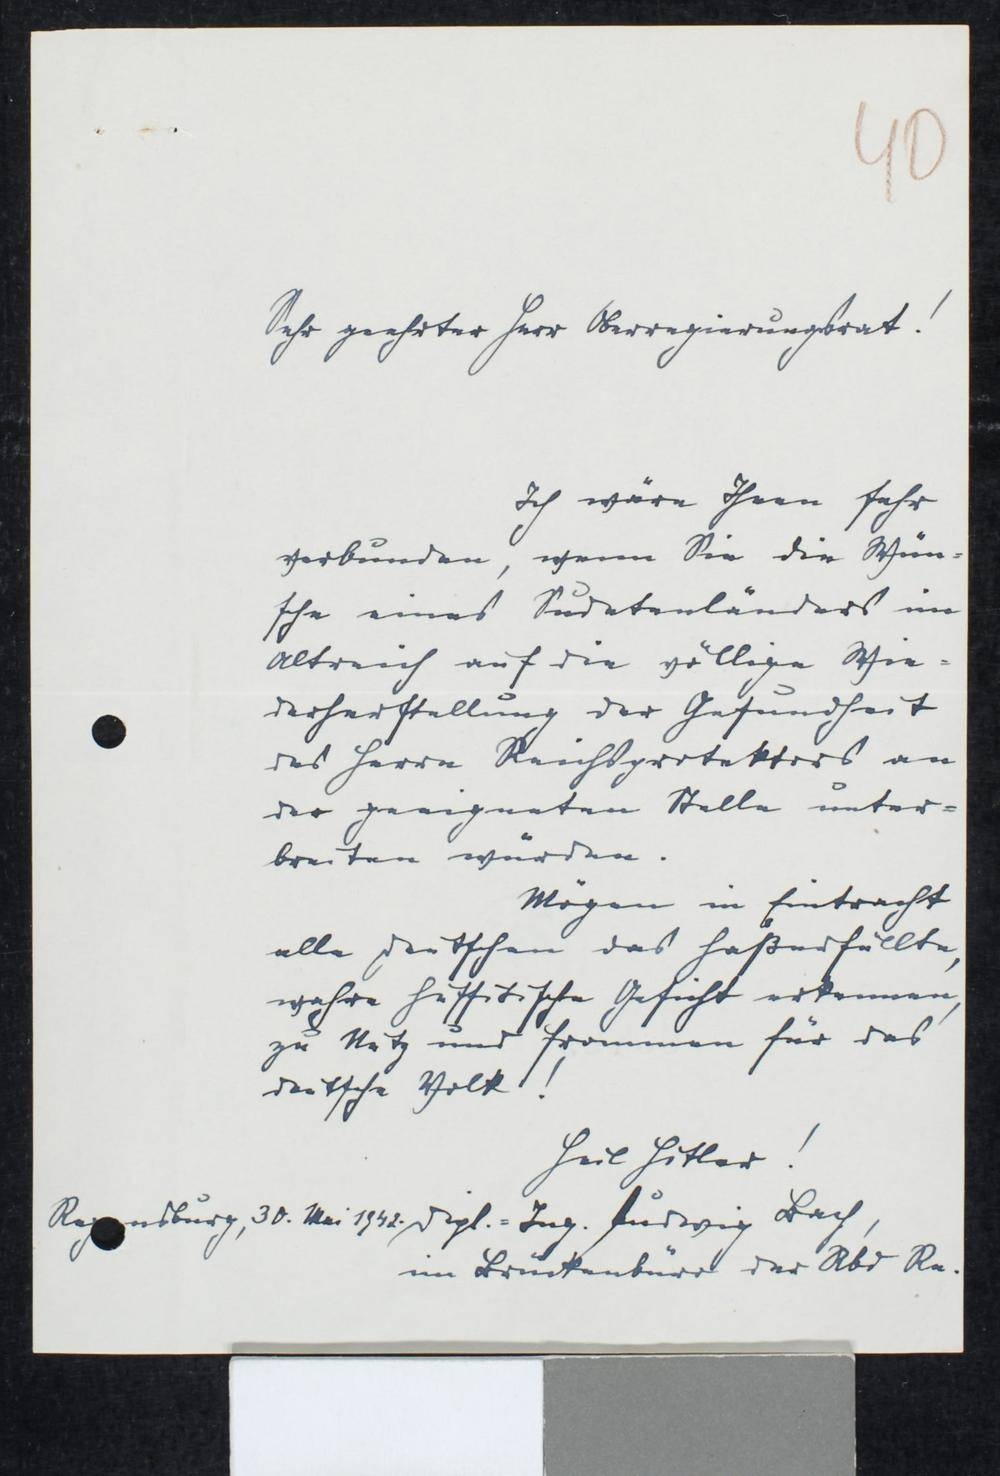 40
Sehr geehrter Herr Oberregierungsrat!
Ich wäre Ihnen sehr
verbunden, wenn Sie die Wün=
sche eines Sudetenländers im
Altreich auf die völlige Wie=
derherstellung der Gesundheit
des Herrn Reichsprotektors an
der geeigneten Stelle unter=
breiten würden.
Mögen in Eintracht
alle Deutschen das haßerfüllte,
wahre hussitische Gesicht erkennen,
zu Nutz und Frommen für das
deutsche Volk!
Heil Hitler!
Regensburg, 30. Mai 1942. Dipl.=Ing. Ludwig Bach,
im Brückenbüro der Rbd Re.